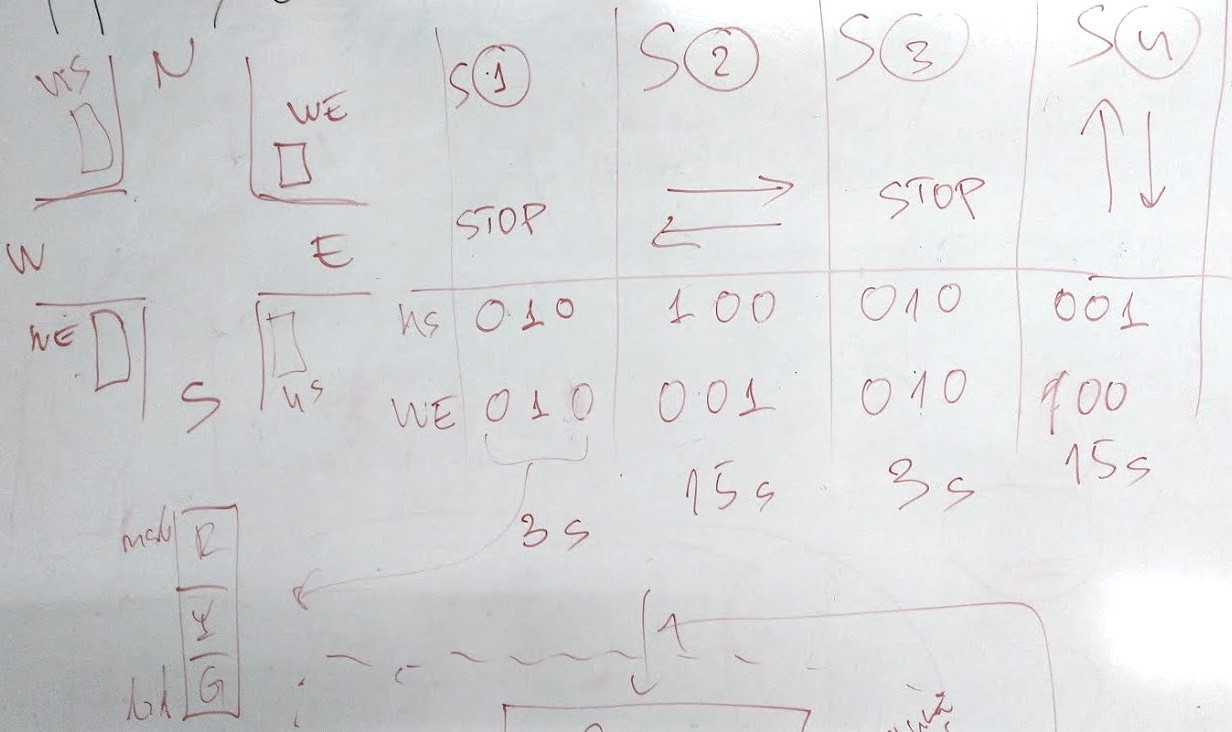 NS N WE
W E
WE S NS
S1 S2 S3 S4
STOP STOP
NS 010 100 010 001
WE 010 001 010 100
3s 15s 3s 15s
msb R
Y
G
1